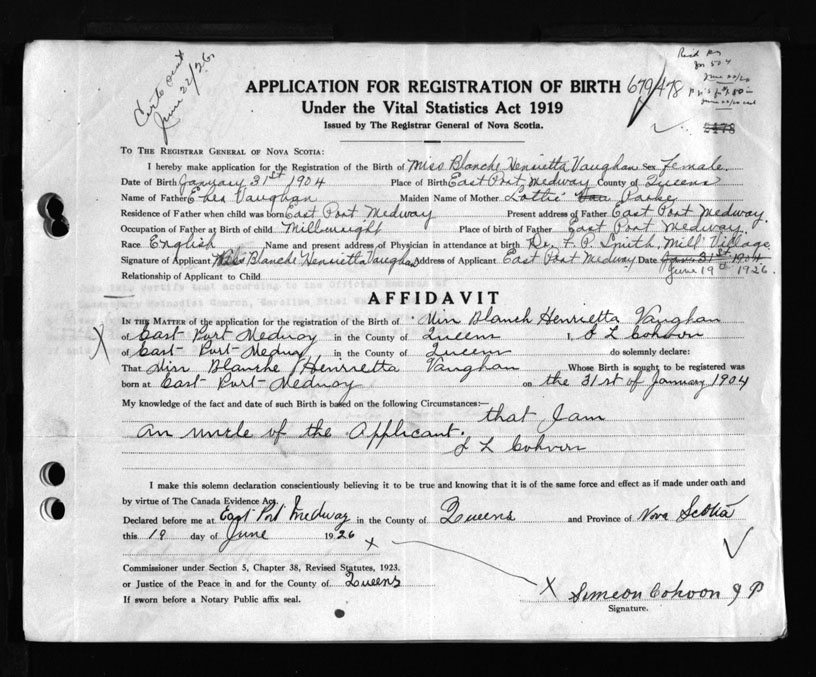 Certs sent
June 22/26
APPLICATION FOR REGISTRATION OF BIRTH 679/478
Under the Vital Statistics Act 1919
Issued by The Registrar General of Nova Scotia.
June 22/26
3178
TO THE REGISTRAR GENERAL OF NOVA SCOTIA:
I hereby make application for the Registration of the Birth of Miss Blanche Henrietta Vaughan Sex female
Date of Birth January 31st 1904 Place of Birth East Port Medway County of Queens
Name of Father Vaughan Maiden Name of Mother Lottie Parke
Residence of Father when child was born East Port Medway Present address of Father East Port Medway
Occupation of Father at Birth of child Millwright Place of birth of Father East Port Medway
Race English Name and present address of Physician in attendance at birth Dr. F. P. Smith, Mill Village
Signature of Applicant Miss Blanche Henrietta Vaughan Address of Applicant East Port Medway Date Jan. 31st 1904
June 19th 1926.
Relationship of Applicant to Child
AFFIDAVIT
IN THE MATTER of the application for the registration of the Birth of Miss Blanch Henrietta Vaughan
of East Port Medway in the County of Queens I, S L Cohoon
of East Port Medway in the County of Queens do solemnly declare:
That Miss Blanche Henrietta Vaughan Whose Birth is sought to be registered was
born at East Port Medway on the 31st of January 1904
My knowledge of the fact and date of such Birth is based on the following Circumstances:—
that I am
an uncle of the Applicant.
S L Cohoon
I make this solemn declaration conscientiously believing it to be true and knowing that it is of the same force and effect as if made under oath and
by virtue of The Canada Evidence Act.
Declared before me at East Port Medway in the County of Queens and Province of Nova Scotia
this 19 day of June 1926
X
Commissioner under Section 5, Chapter 38, Revised Statutes, 1923.
or Justice of the Peace in and for the County of Queens
If sworn before a Notary Public affix seal.
X Simeon Cohoon J P
Signature.